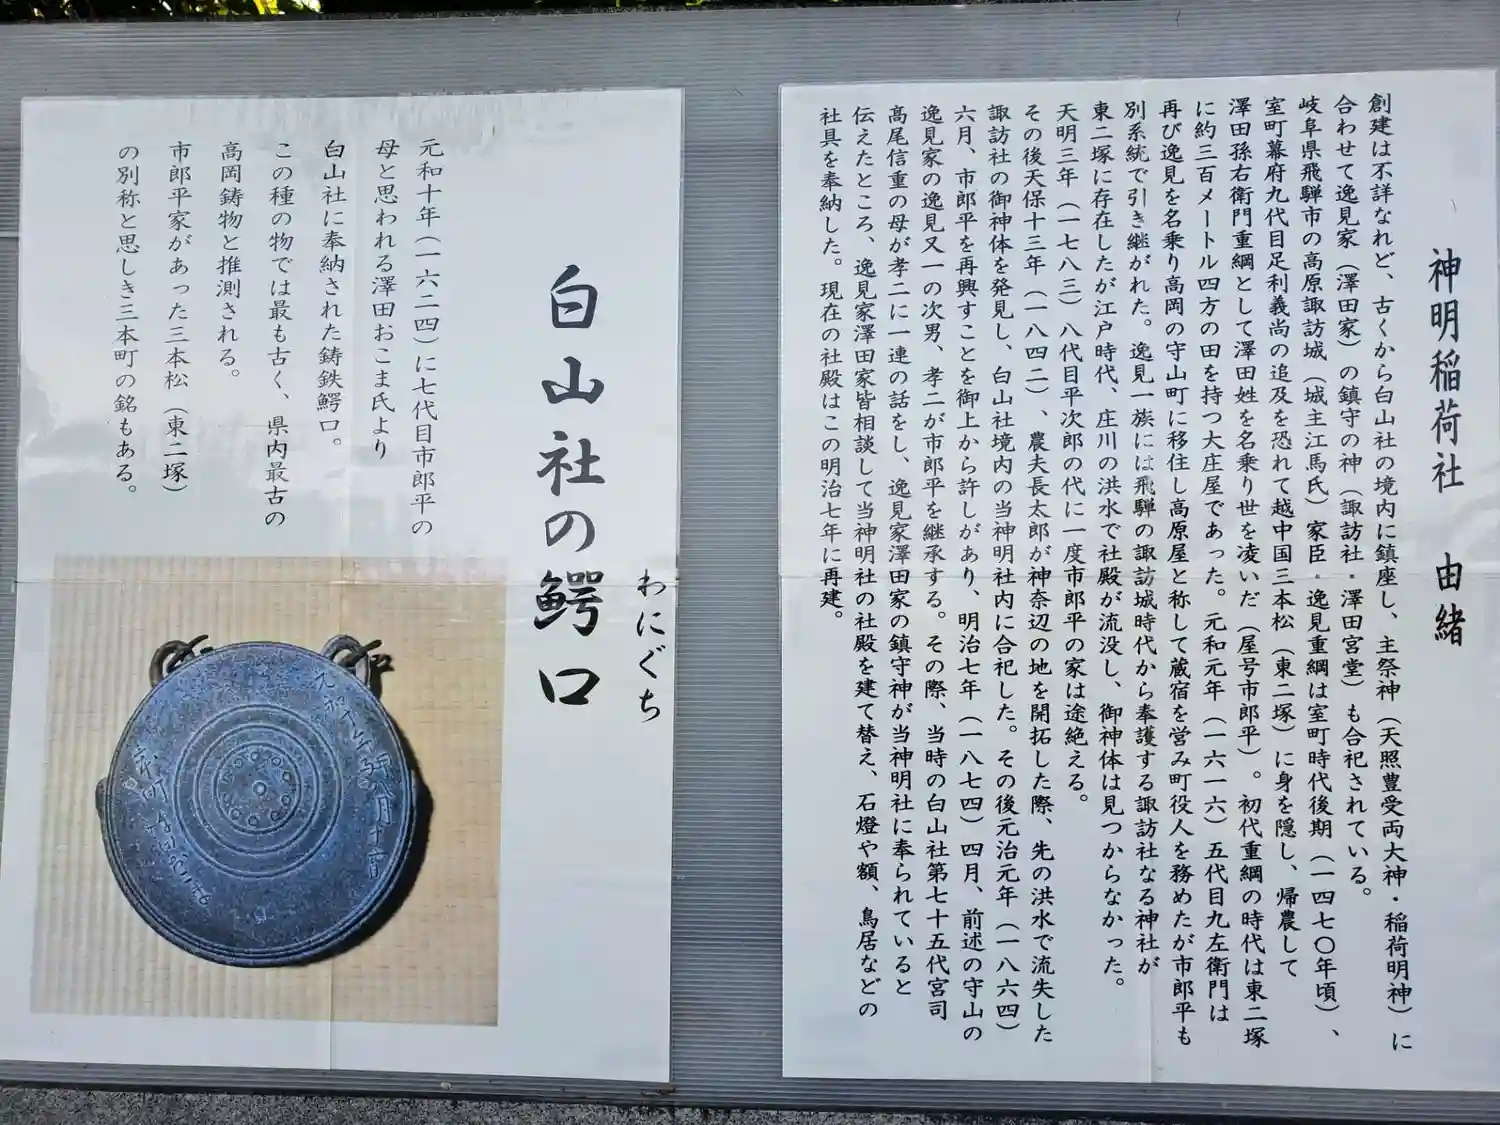 神明稲荷社 由緒
創建は不詳なれど、古くから白山社の境内に鎮座し、主祭神（天照豊受両大神・稲荷明神）に
合わせて逸見家（澤田家）の鎮守の神（諏訪社・澤田宮堂）も合祀されている。
岐阜県飛騨市の高原諏訪城（城主江馬氏）家臣・逸見重綱は室町時代後期（一四七〇年頃）、
室町幕府九代目足利義尚の追及を恐れて越中国三本松（東二塚）に身を隠し、帰農して
澤田孫右衛門重綱として澤田姓を名乗り世を凌いだ（屋号市郎平）。初代重綱の時代は東二塚
に約三百メートル四方の田を持つ大庄屋であった。元和元年（一六一六）五代目九左衛門は
再び逸見を名乗り高岡の守山町に移住し高原屋と称して蔵宿を営み町役人を務めたが市郎平も
別系統で引き継がれた。逸見一族には飛騨の諏訪城時代から奉護する諏訪社なる神社が
東二塚に存在したが江戸時代、庄川の洪水で社殿が流没し、御神体は見つからなかった。
天明三年（一七八三）八代目平次郎の代に一度市郎平の家は途絶える。
その後天保十三年（一八四二）、農夫長太郎が神奈辺の地を開拓した際、先の洪水で流失した
諏訪社の御神体を発見し、白山社境内の当神明社内に合祀した。その後元治元年（一八六四）
六月、市郎平を再興すことを御上から許しがあり、明治七年（一八七四）四月、前述の守山の
逸見家の逸見又一の次男、孝二が市郎平を継承する。その際、当時の白山社第七十五代宮司
高尾信重の母が孝二に一連の話をし、逸見家澤田家の鎮守神が当神明社に奉られていると
伝えたところ、逸見家澤田家皆相談して当神明社の社殿を建て替え、石燈や額、鳥居などの
社具を奉納した。現在の社殿はこの明治七年に再建。
わにぐち
白山社の鰐口
元和十年（一六二四）に七代目市郎平の
母と思われる澤田おこま氏より
白山社に奉納された鋳鉄鰐口。
この種の物では最も古く、県内最古の
高岡鋳物と推測される。
市郎平家があった三本松（東二塚）
の別称と思しき三本町の銘もある。